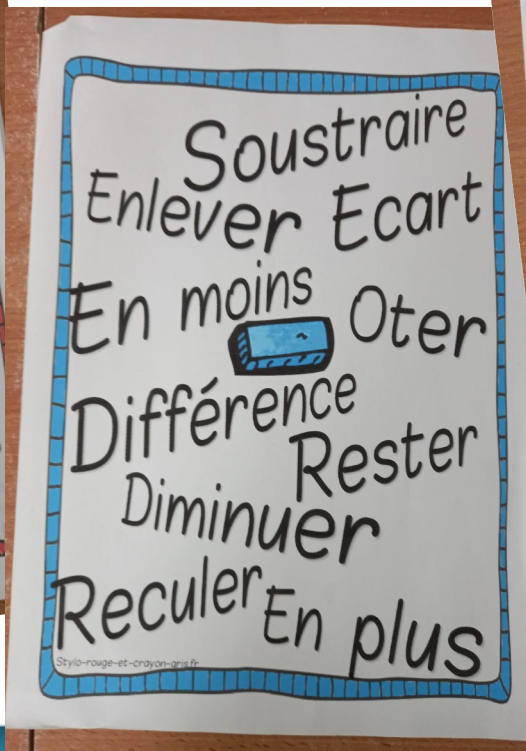 Soustraire
Enlever Ecart
En moins Oter
Différence
Rester
Diminuer
Reculer En plus
Stylo-rouge-et-crayon-gris.fr